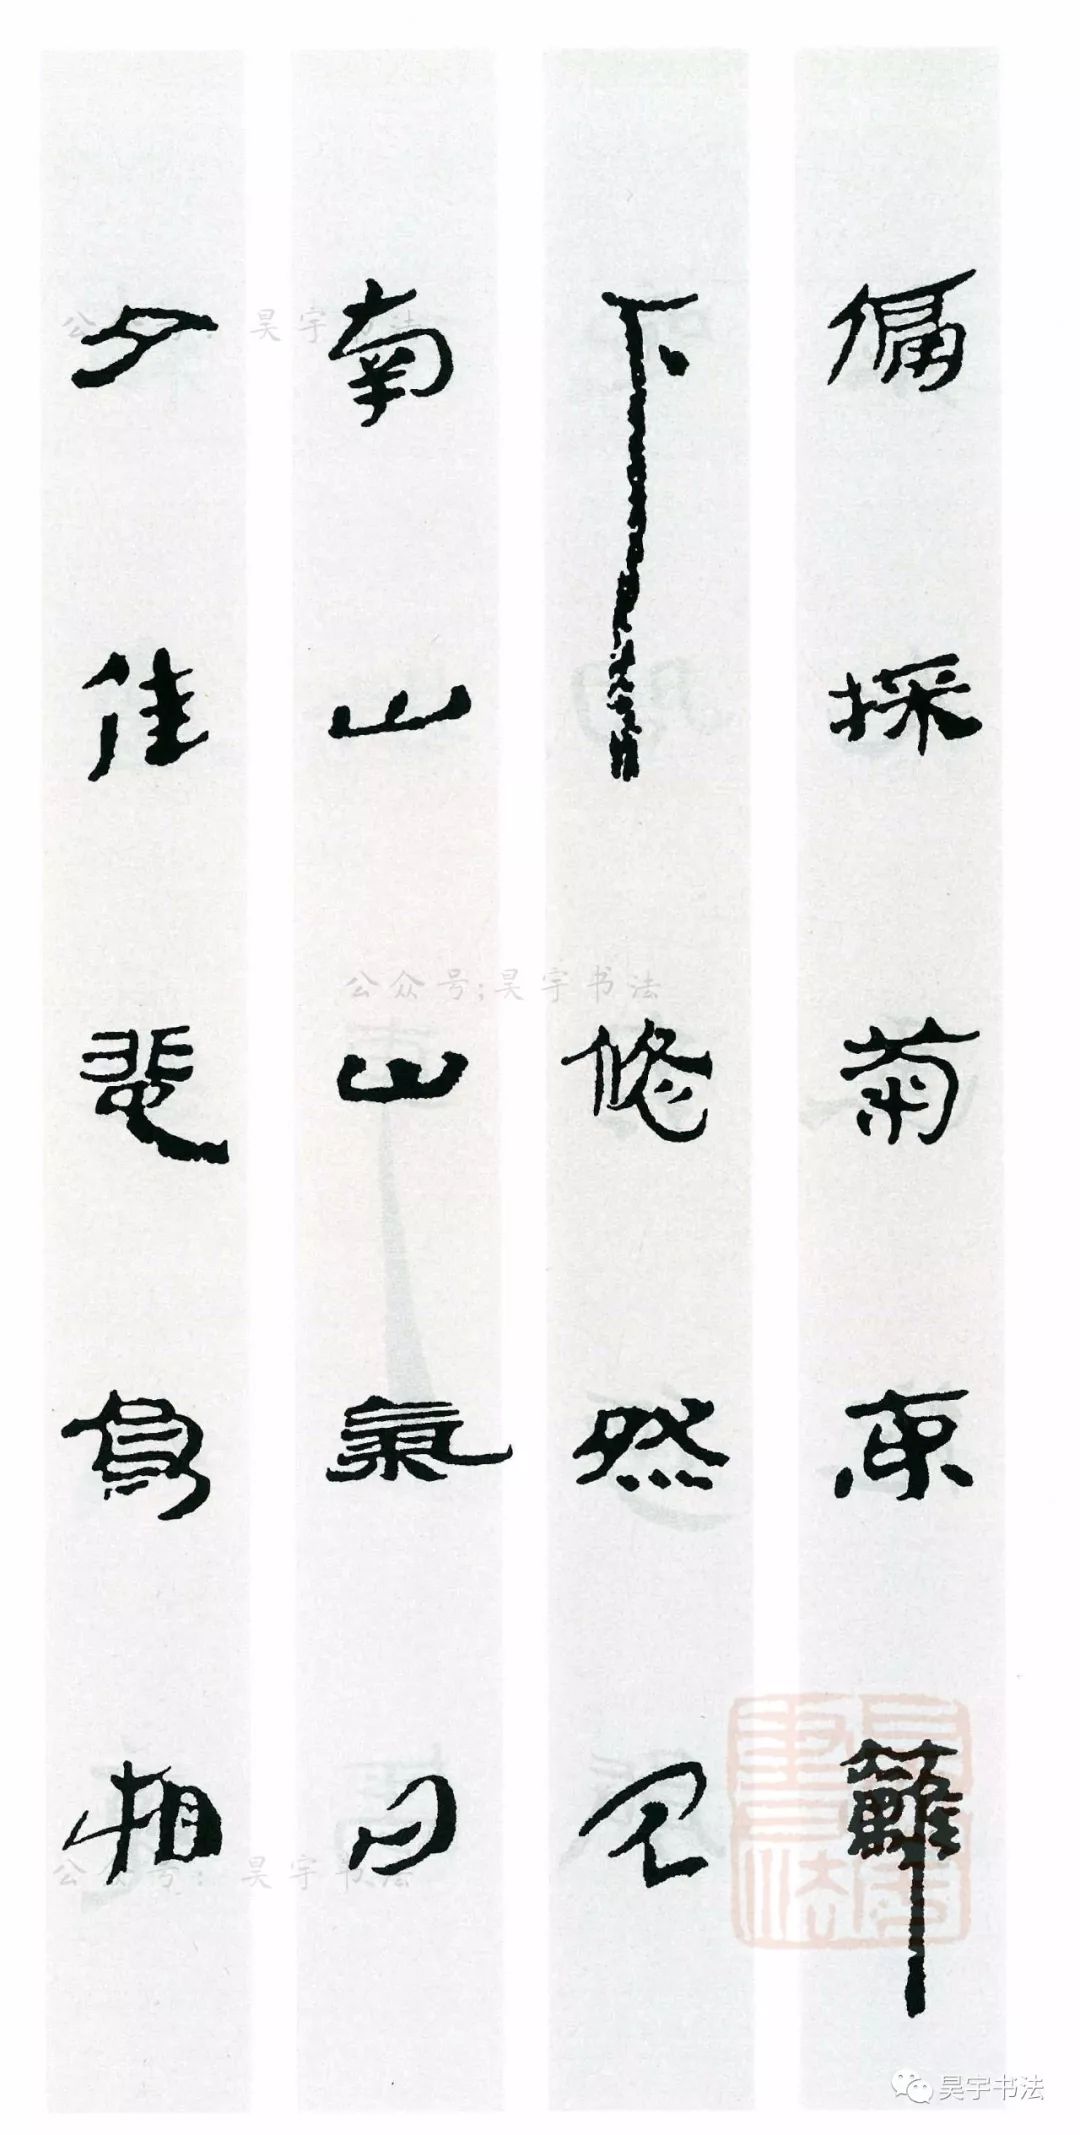 偏採菊東籬
下悠然見
南山山氣日
夕佳飛鳥相
公众号:昊宇书法
公众号;昊宇书法
公众号:昊宇书法
昊宇書法
昊宇书法